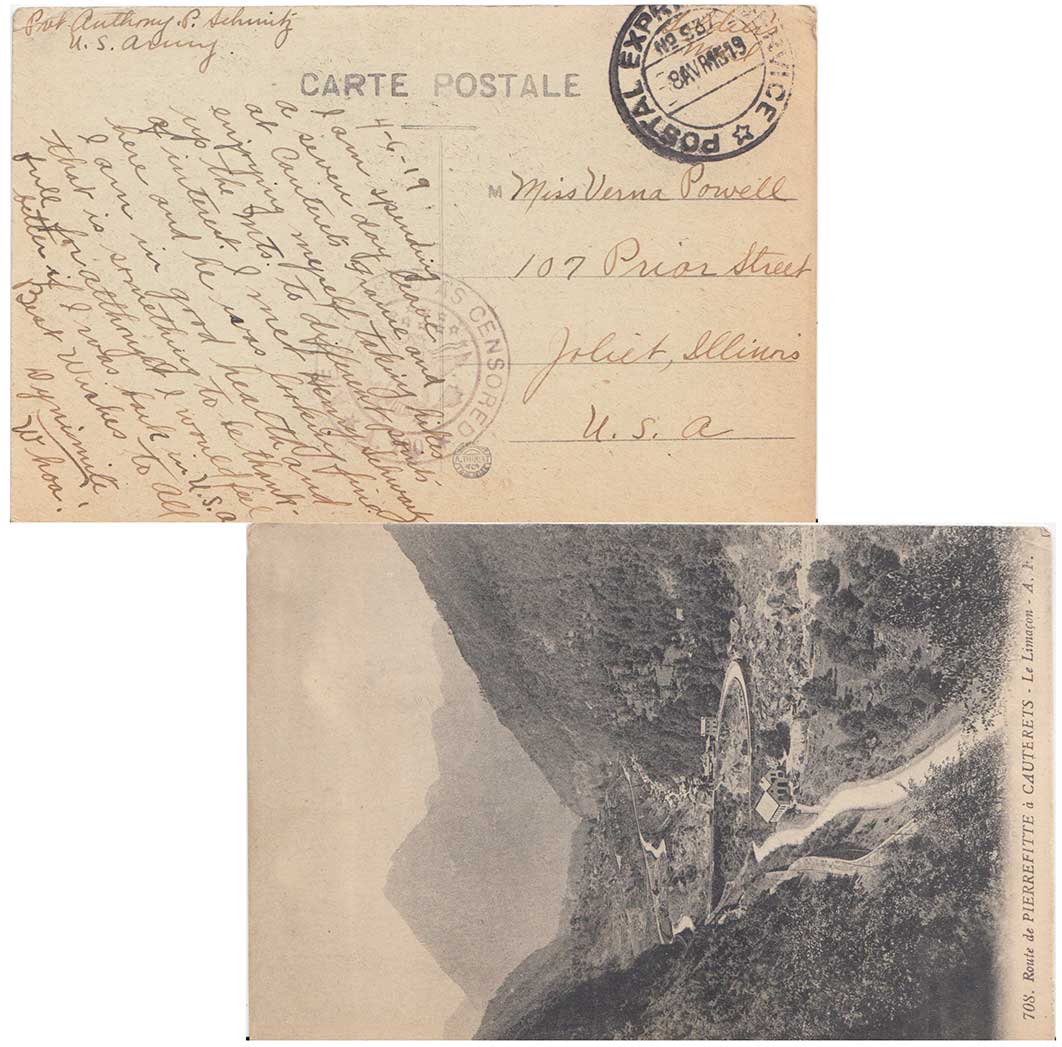 Pvt Anthony P. Schmitz
U. S. Army.
Soldiers
Mail
CARTE POSTALE
POSTAL EXPRESS SERVICE
No 937
8 AVR 1919
4-6-19
I am spending
a seven day leave
at Cauterets France and
enjoying myself taking hikes
up the Mts to different points
of interest. I met Henry Schwartz
here and he was looking fine
I am in good health and
that is something to be thank-
full for altthought I would feel
better if I was back in U.S.A
Best Wishes to all
Dynimite
Whoa!
M Miss Verna Powell
107 Prior Street
Joliet, Illinois
U. S. A
AS CENSORED
708. Route de PIERREFITTE à CAUTERETS - Le Limaçon - A. F.